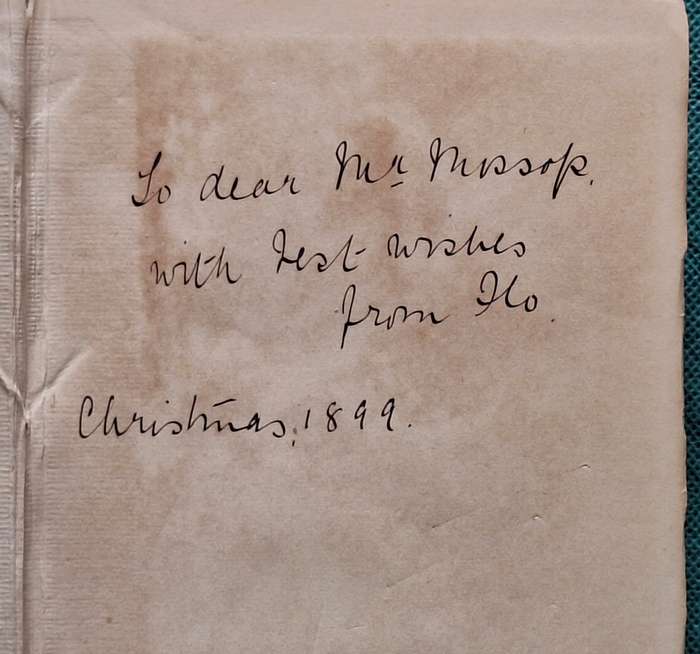 To dear Mr Mossop.
with best wishes
from Flo.
Christmas, 1899.